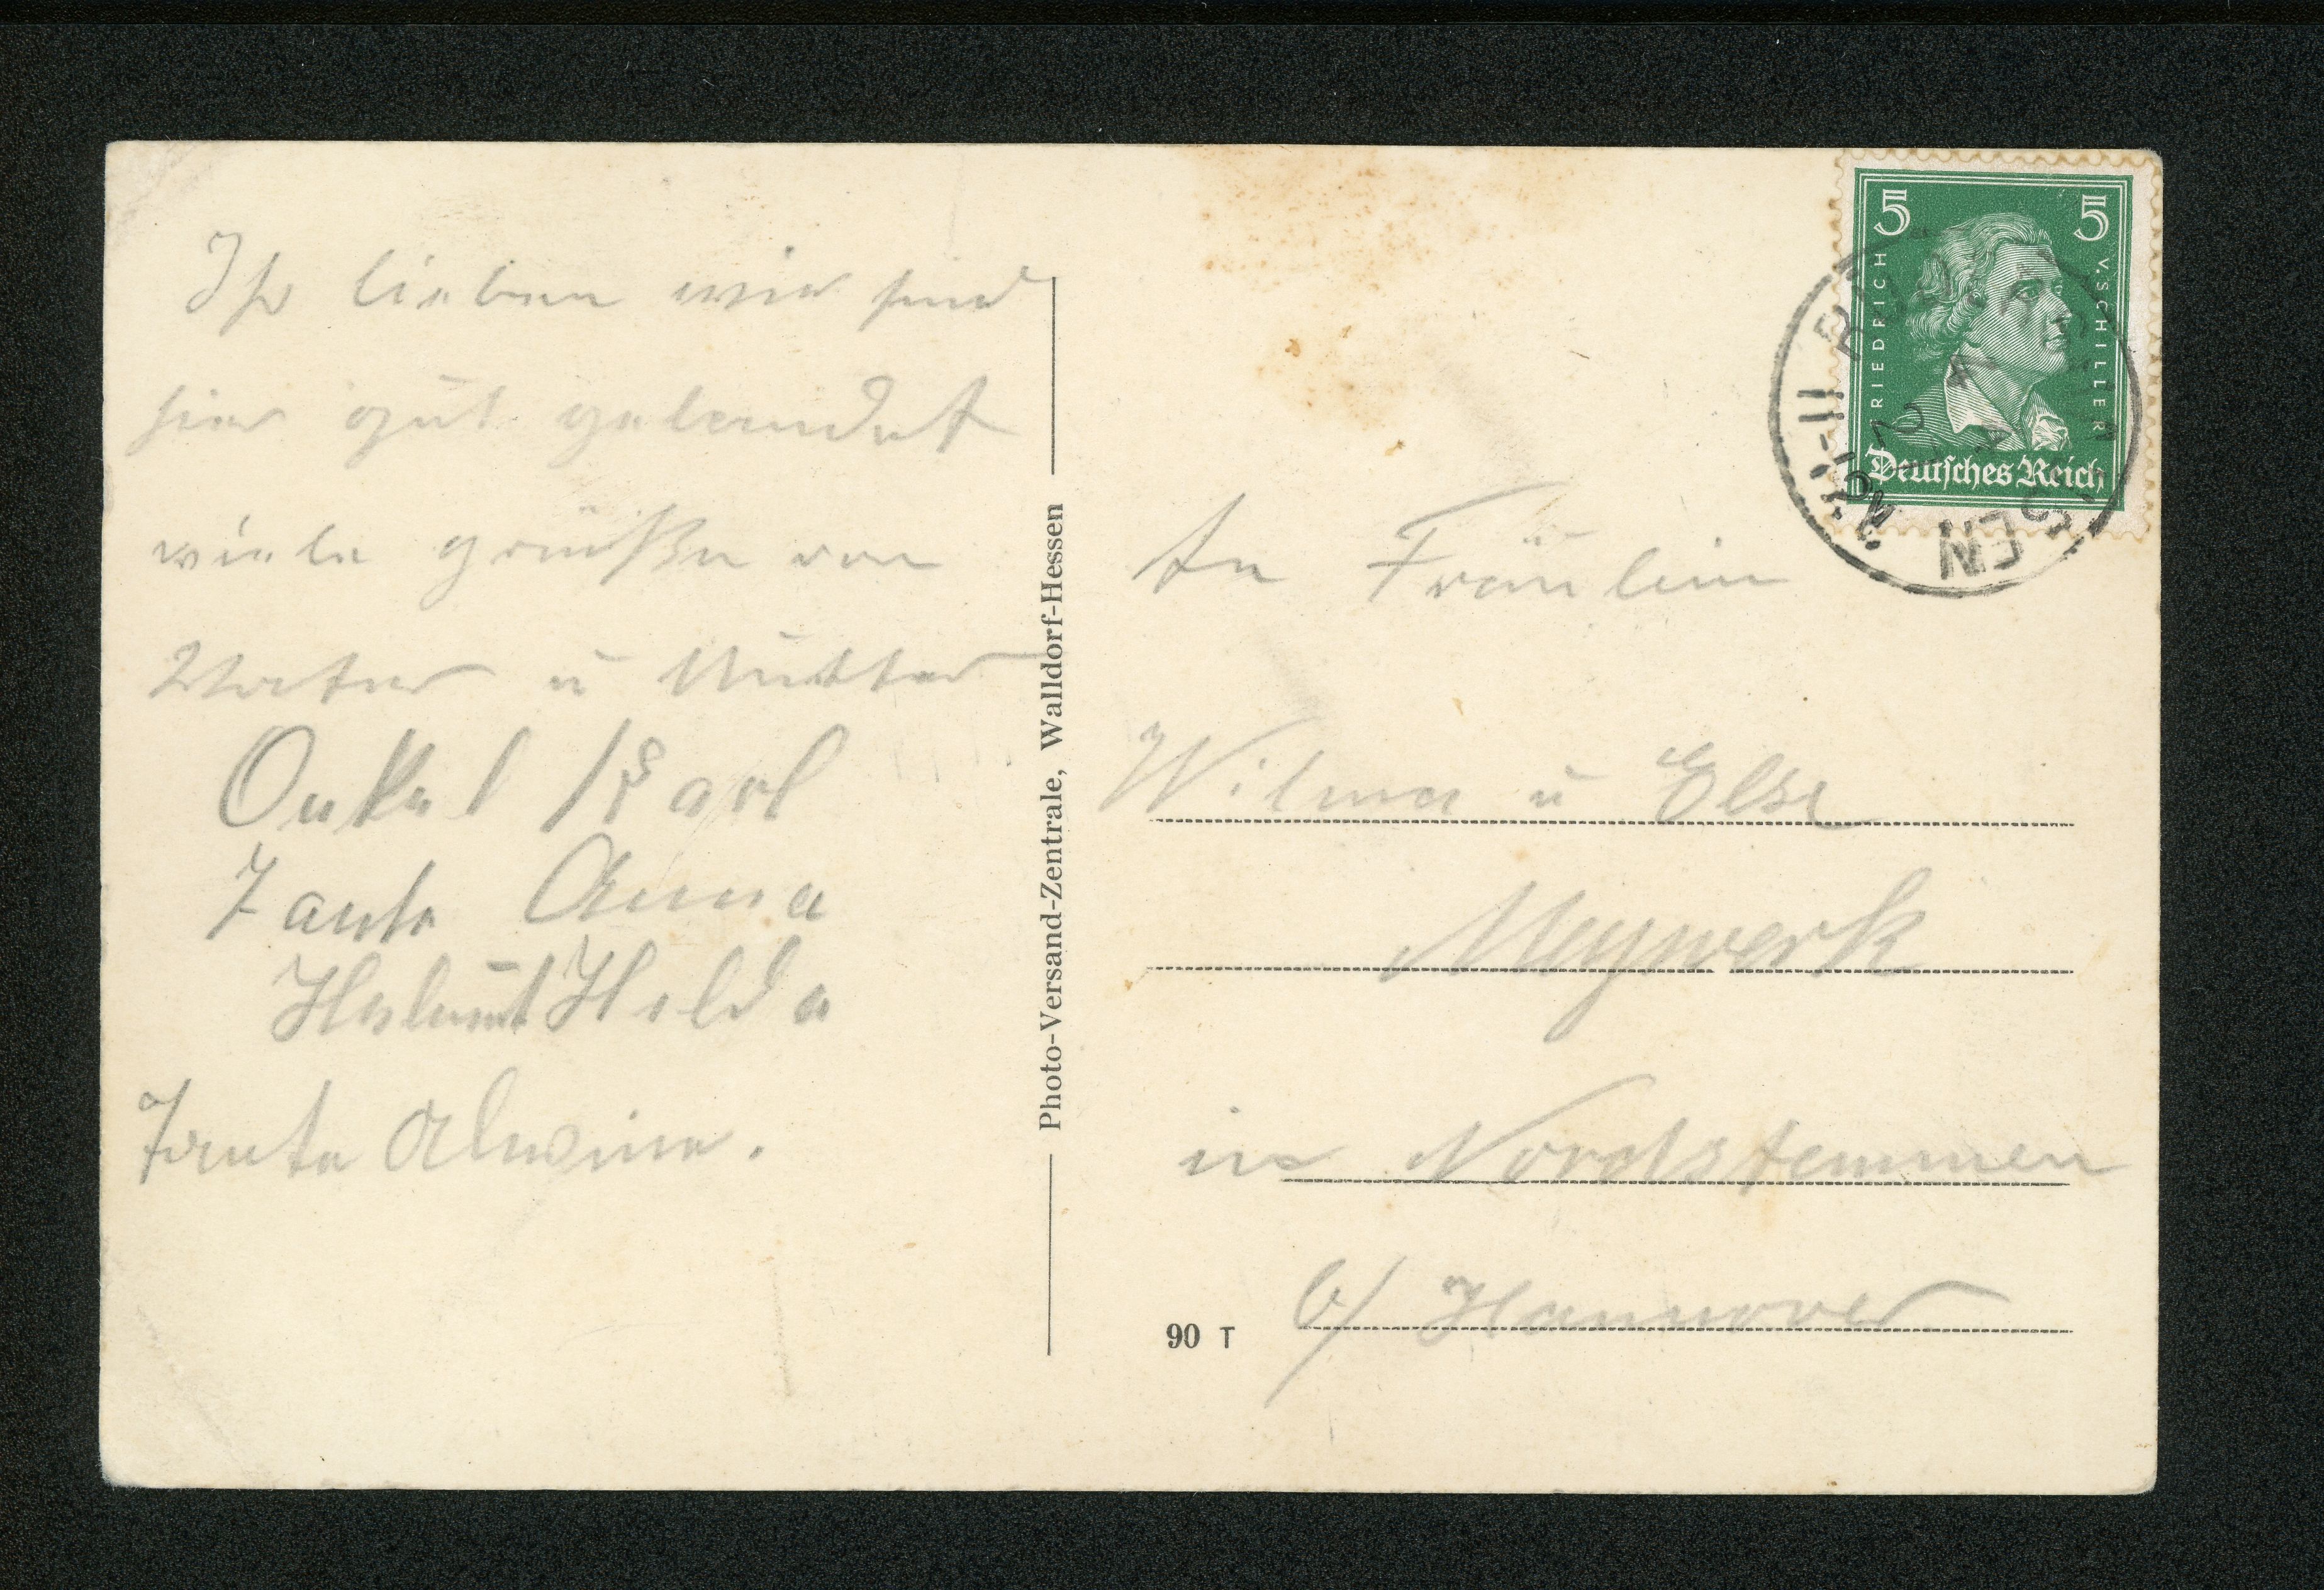 Ihr lieben wir sind
hier gut gelandet
viele grüße von
Vater u Mutter
Onkel Karl
Tante Anna
Helmut Helda
Tante Alwine.
Photo-Versand-Zentrale, Walldorf-Hessen
5 5
FRIEDRICH V. SCHILLER
Deutsches Reich
An Fräulein
Wilma u Else
Meywerk
in Nordstemmen
b/ Hannover
90 T